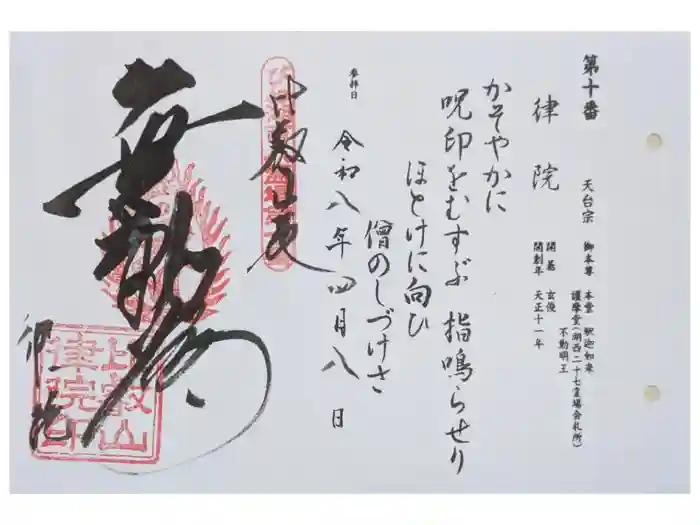 第十番
律院
天台宗
御本尊 本堂 釈迦如来
護摩堂(湖西二十七霊場会札所)
不動明王
開基 玄俊
開創年 天正十一年
かそやかに
呪印をむすぶ 指鳴らせり
ほとけに向ひ
僧のしづけさ
参拝日
令和八年四月八日
比叡山麓
律院
比叡山
律院印